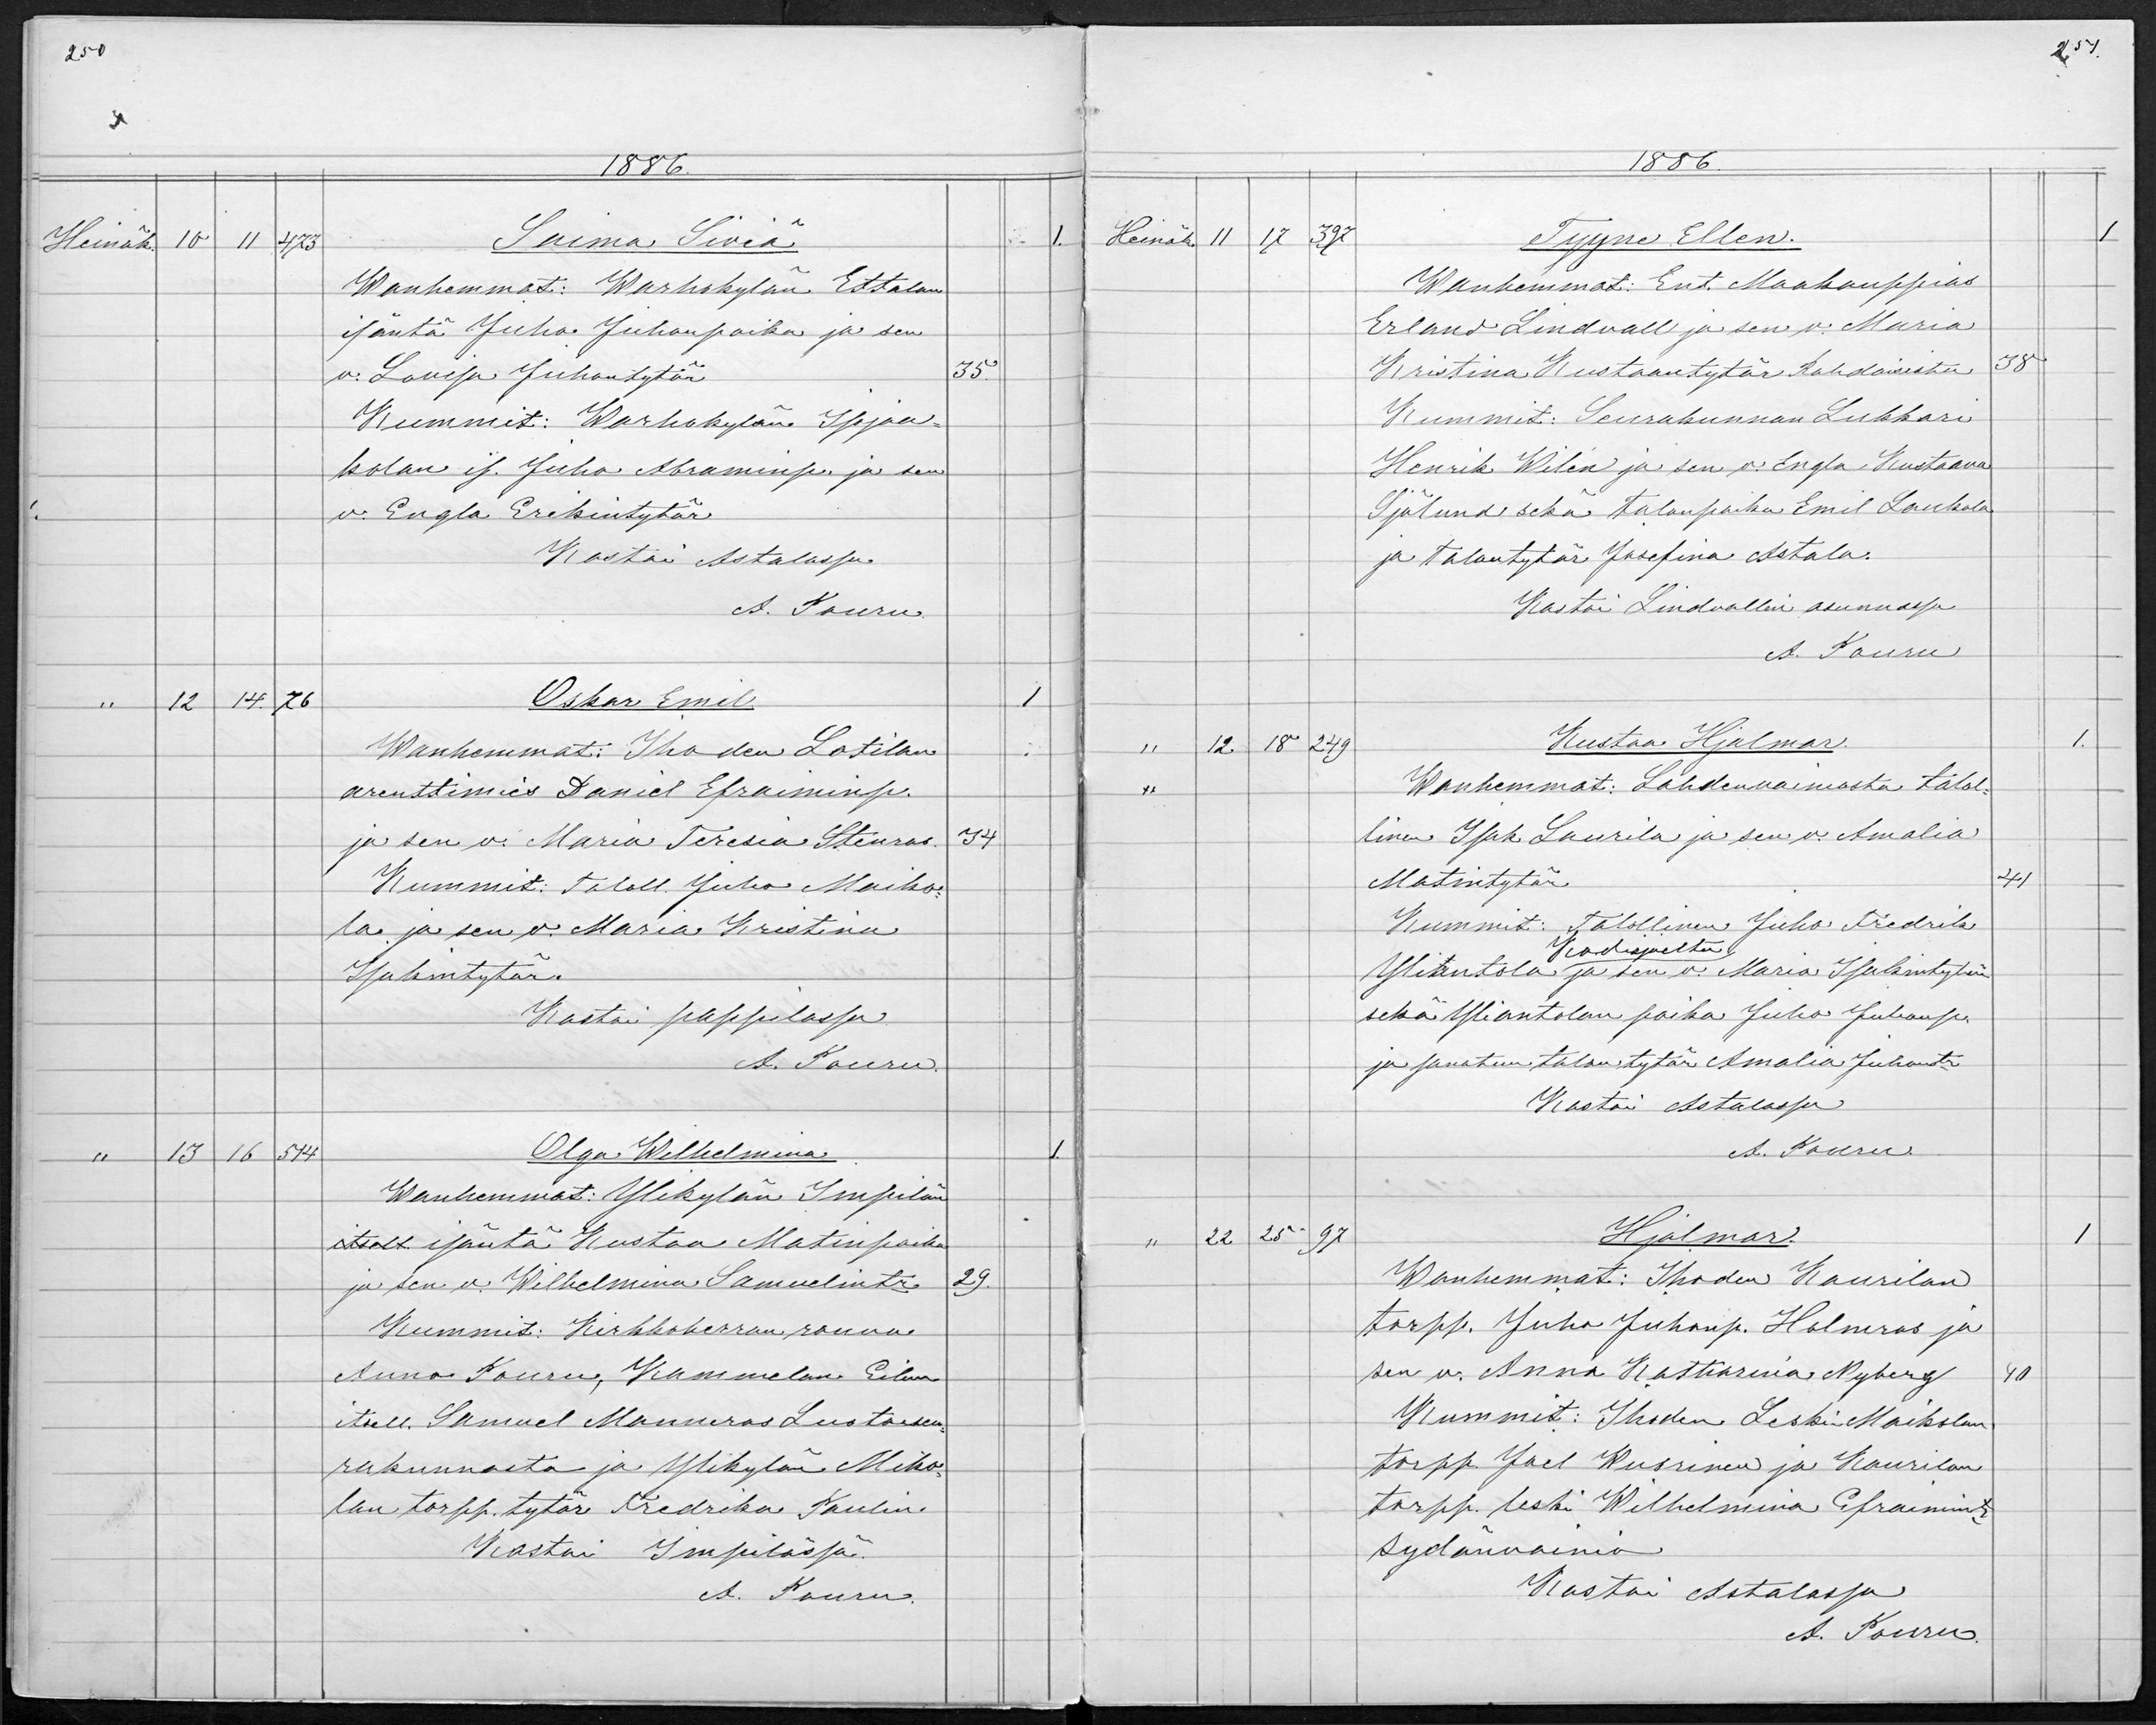 250
1886.
Heinäk. 10 11 473 Saima Siviä 1.
Wanhemmat: Warhokylän Ettalan
isäntä Juho Juhonpoika ja sen
v. Lovisa Juhontytär 35.
Kummit: Warhokylän Isojaa-
kolan is. Juho Abraminp. ja sen
v. Engla Erikintytär
Kastoi Astalassa
A. Kouru.
" 12 14. 76 Oskar Emil 1
Wanhemmat: Ihoden Lotilan
arenttimies Daniel Efraiminp.
ja sen v. Maria Teresia Stenros. 34
Kummit: Taloll. Juho Maiko-
la ja sen v. Maria Kristina
Isakintytär.
Kastoi pappilassa
A. Kouru.
" 13 16 514 Olga Wilhelmina 1.
Wanhemmat: Ylikylän Impilän
itsell. isäntä Kustaa Matinpoika
ja sen v. Wilhelmina Samuelintr. 29.
Kummit: Kirkkoherran rouva
Anna Kouru, Kammelan Eilan
itsell. Samuel Manneros Luotoseu-
rakunnasta ja Ylikylän Miko-
lan torpp. tytär Fredrika Paulin.
Kastoi Impilässä.
A. Kouru.
251.
1886.
Heinäk. 11 17 397 Tyyne Ellen. 1
Wanhemmat: Ent. Maakauppias
Erland Lindvall ja sen v. Maria
Kristina Kustaantytär Kahdoisista 38
Kummit: Seurakunnan Lukkari
Henrik Wilén ja sen v. Engla Kustaava
Sjölund sekä talonpoika Emil Laukola
ja talontytär Josefina Astala.
Kastoi Lindvallin asunnossa
A. Kouru
" 12 18 249 Kustaa Hjalmar. 1.
" Wanhemmat: Lahdenvainiosta talol-
linen Isak Laurila ja sen v. Amalia
Matintytär 41
Kummit: Talollinen Juho Fredrik
Kodisjoelta
Yliantola ja sen v. Maria Isakintytär
sekä Yliantolan poika Juho Juhonp.
ja sanotun talon tytär Amalia Juhontr
Kastoi Astalassa
A. Kouru.
" 22 25 97 Hjalmar. 1
Wanhemmat: Ihoden Kaurilan
torpp. Juho Juhonp. Holmros ja
sen v. Anna Katharina Nyberg 40
Kummit: Ihoden Leski Maikolan
torpp. Joel Wuorinen ja Kaurilan
torpp. leski Wilhelmina Efraimintr
Sydänvainio
Kastoi Astalassa
A. Kouru.